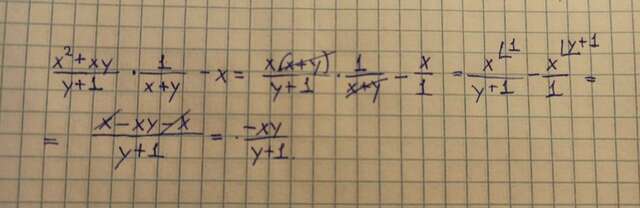 (x²+xy)/(y+1) · 1/(x+y) - x = x(x+y)/(y+1) · 1/(x+y) - x/1 = x⌊1/(y+1) - x⌊y+1/1 =
= (x-xy-x)/(y+1) = -xy/(y+1).